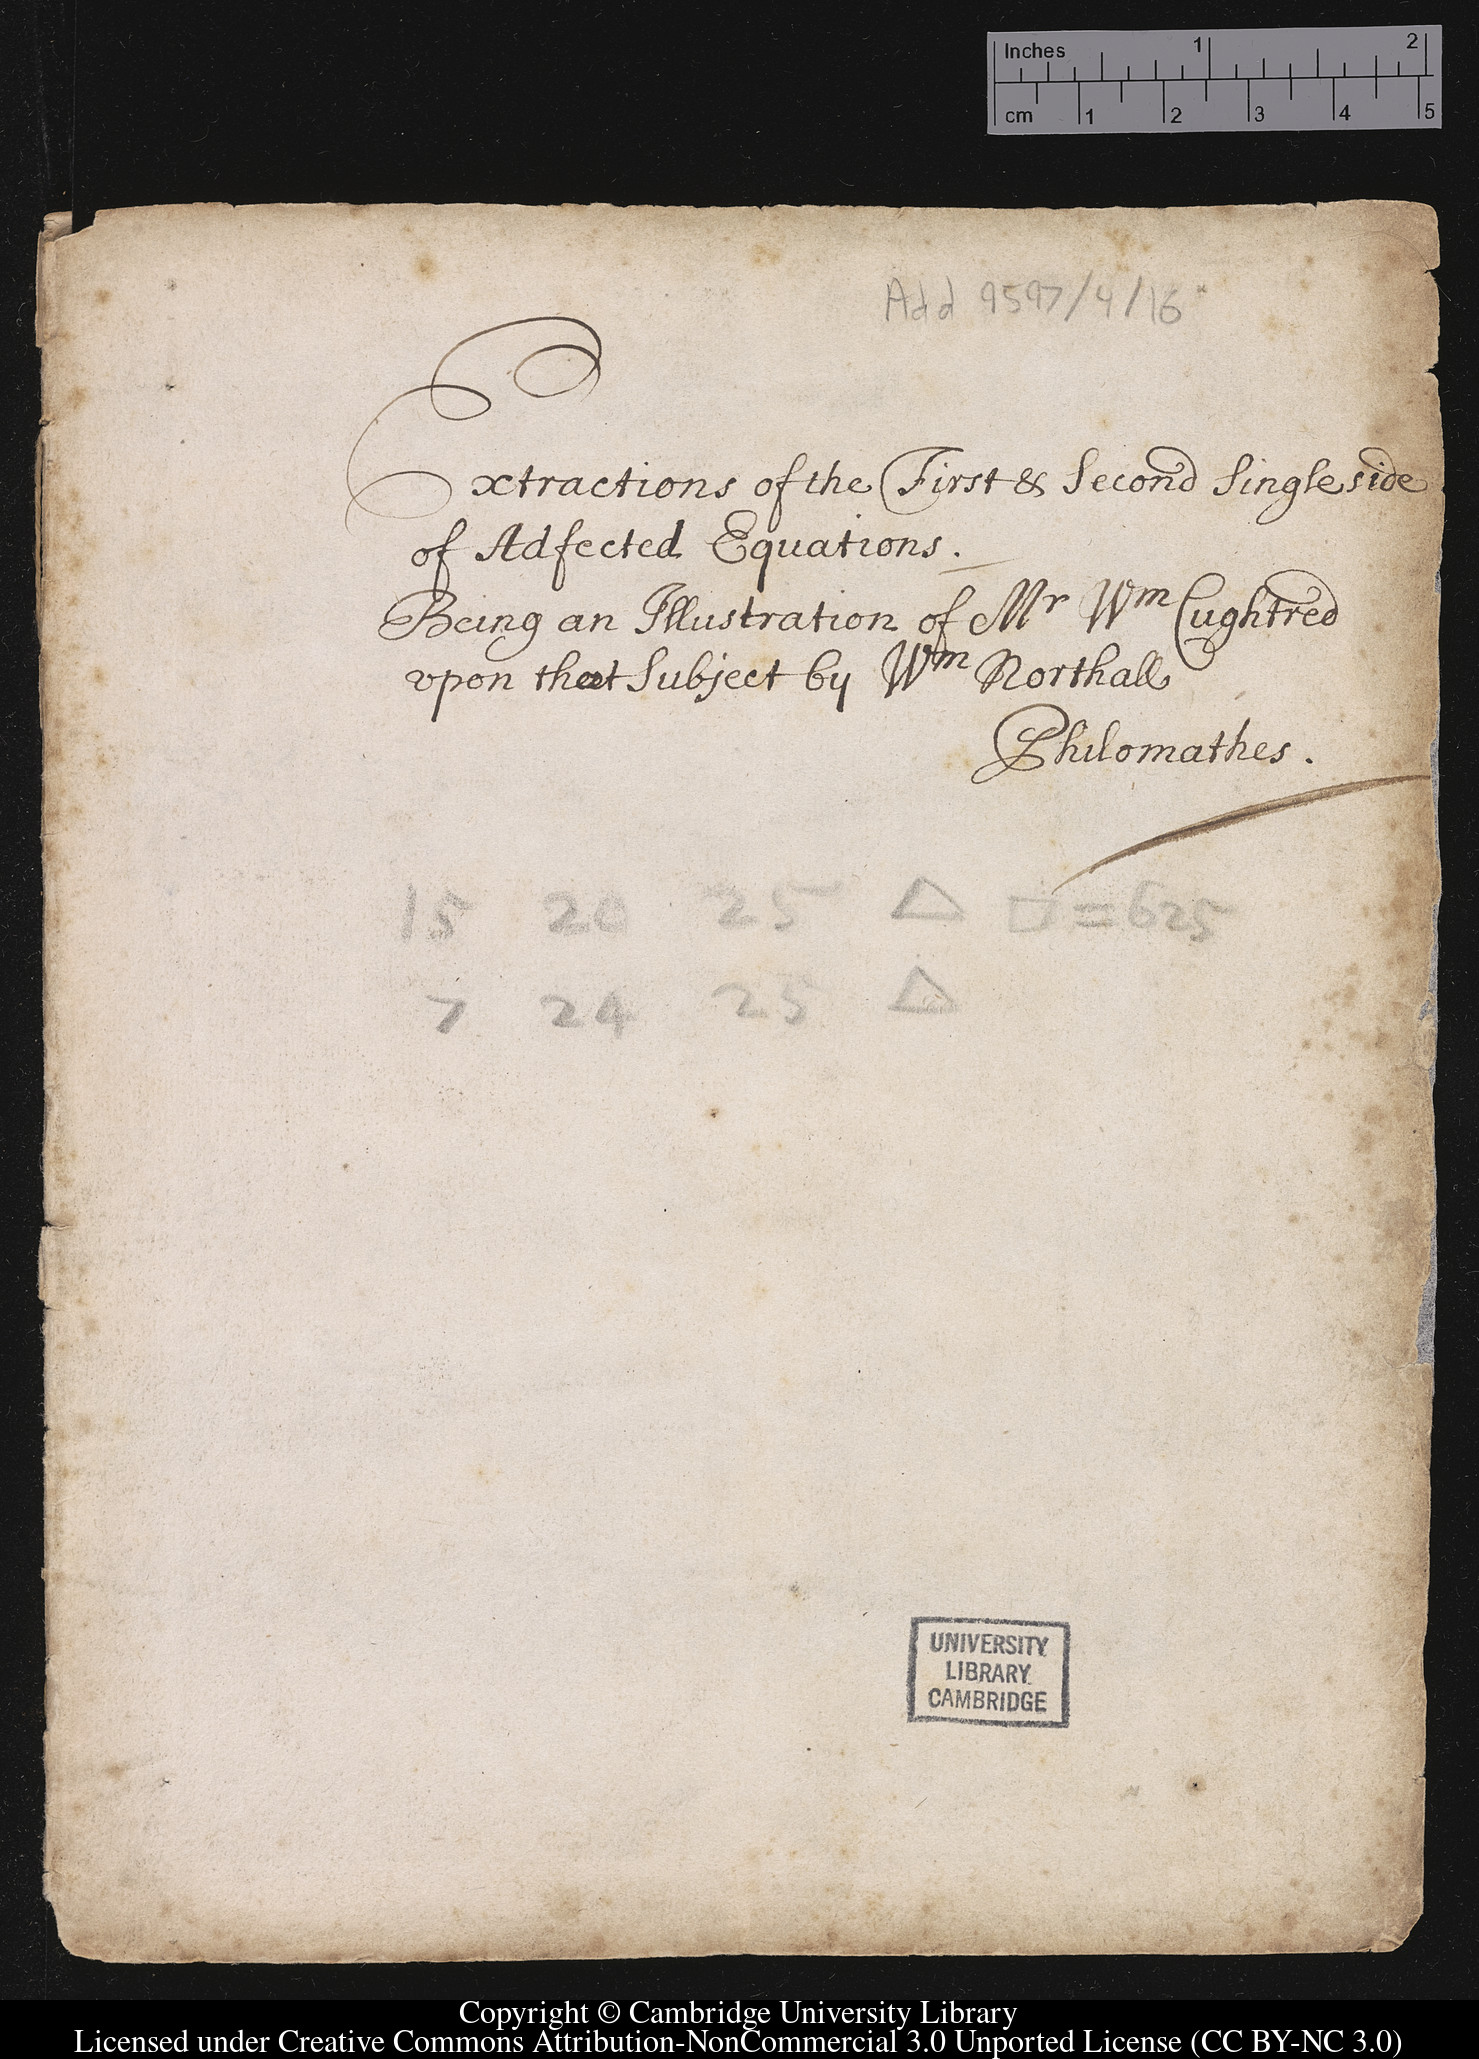 Inches 1 2
cm 1 2 3 4 5
Add 9597/4/16
Extractions of the First & Second Single side
of Adfected Equations.
Being an Illustration of Mr Wm Oughtred
vpon that Subject by Wm Northall
Philomathes.
15 20 25 △ □ = 625
7 24 25 △
UNIVERSITY
LIBRARY
CAMBRIDGE
Copyright © Cambridge University Library
Licensed under Creative Commons Attribution-NonCommercial 3.0 Unported License (CC BY-NC 3.0)